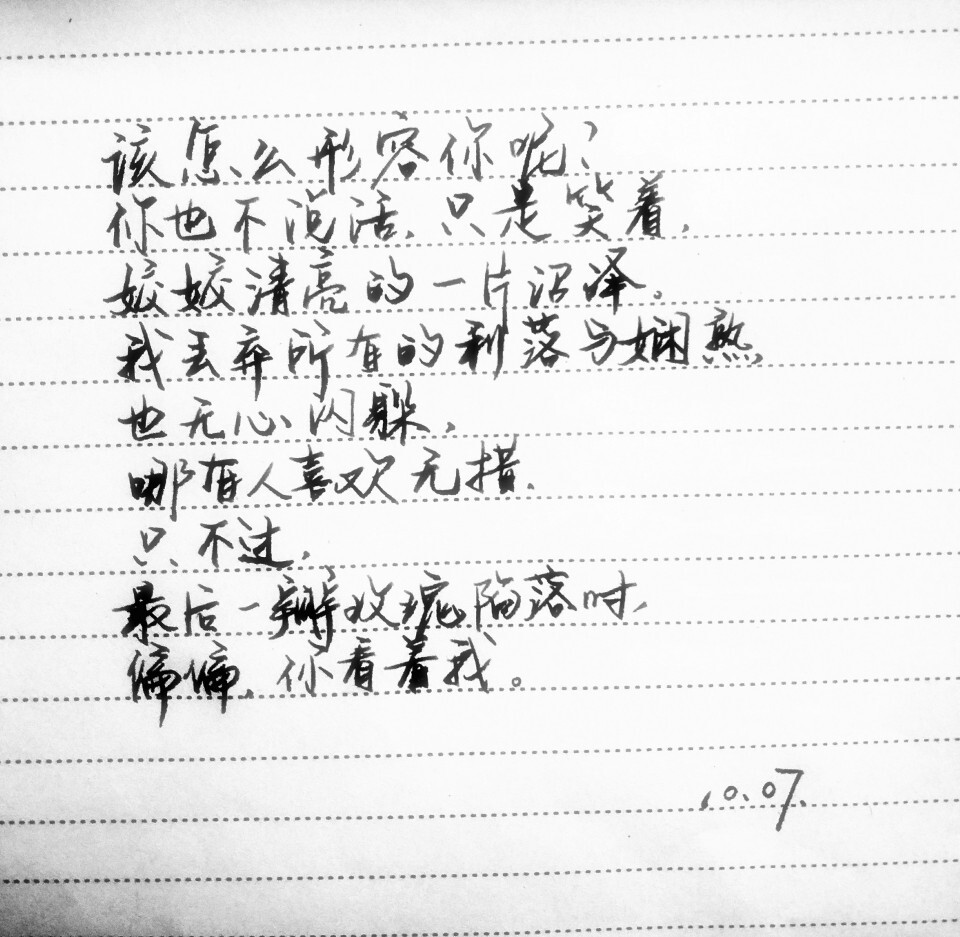 该怎么形容你呢?
你也不说话,只是笑着,
姣姣清亮的一片沼泽。
我丢弃所有的利落与娴熟,
也无心闪躲,
哪有人喜欢无措,
只不过,
最后一瓣玫瑰陷落时,
偏偏,你看着我。
10.07.